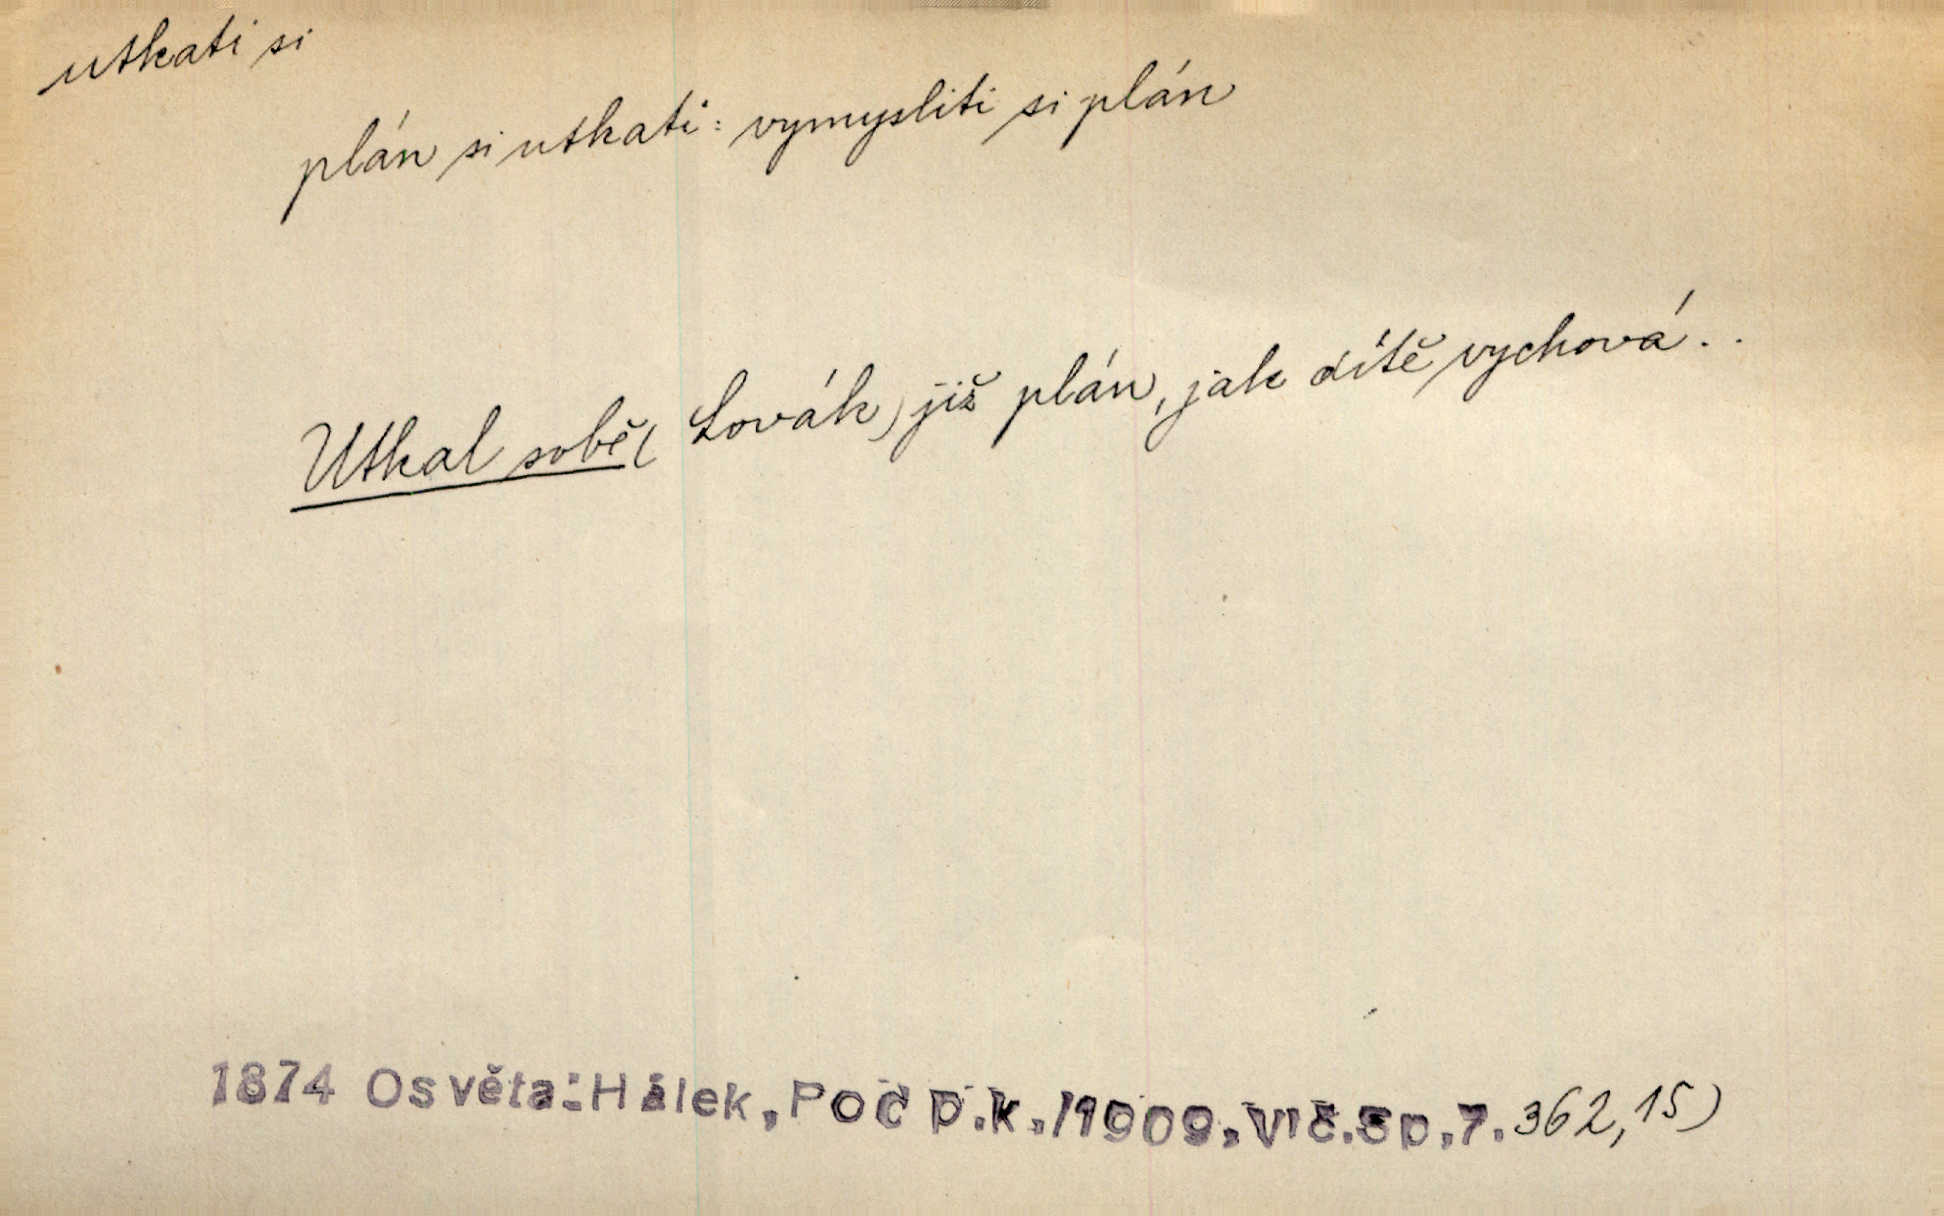 utkati si
plán si utkati: vymysliti si plán
Utkal sobě (Lovák) již plán, jak dítě vychová..
1874 Osvěta:Hálek,Poč p.k./1909,Vlč.Sp.7.362,15)